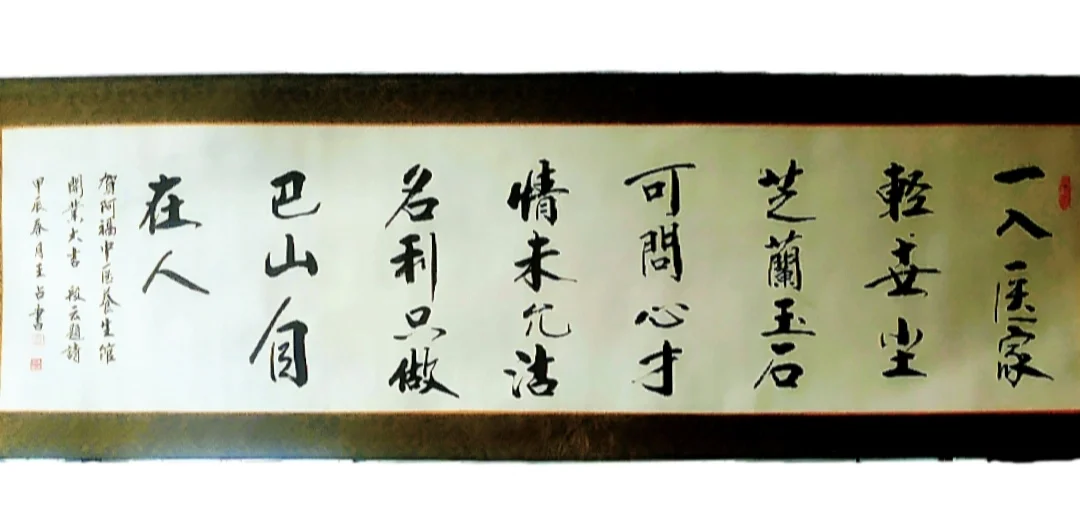 一入医家
輕世尘
芝蘭玉石
可問心才
情未允沽
名利只做
巴山自
在人
賀阿福中医養生館
開業大書 殷云題詩
甲辰春月王占書